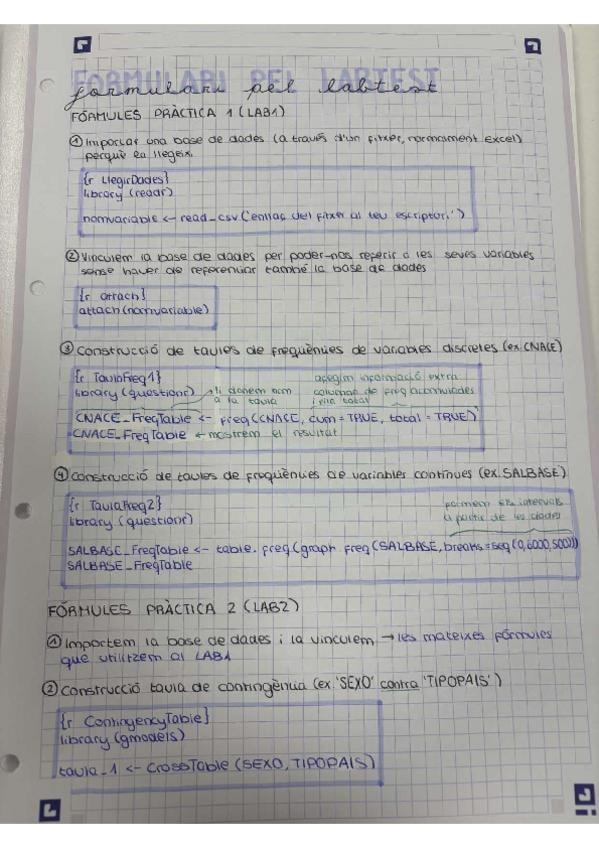 FORMULARI PEL LABTEST
formulari pel labtest
FÓRMULES PRÀCTICA 1 (LAB1)
① Importar una base de dades (a través d'un fitxer, normalment Excel)
perquè la llegeixi.
{r LlegirDades}
library (readr)
nomvariable <- read_csv ('enllaç del fitxer al teu escriptori')
② Vinculem la base de dades per poder-nos referir a les seves variables
sense haver de referenciar també la base de dades
{r attach}
attach (nomvariable)
③ Construcció de taules de freqüències de variables discretes (ex. CNACE)
{r TaulaFreq1}
afegim informació extra
library (questionr)
li donem nom
a la taula
columna de freq acumulades
i fila total
CNACE_FreqTable <- freq (CNACE, cum = TRUE, total = TRUE)
CNACE_FreqTable ← mostrem el resultat
④ Construcció de taules de freqüències de variables contínues (ex. SALBASE)
{r TaulaFreq2}
library (questionr)
formem els intervals
a partir de les dades
SALBASE_FreqTable <- table.freq (graph.freq (SALBASE, breaks = seq (0,6000,500)))
SALBASE_FreqTable
FÓRMULES PRÀCTICA 2 (LAB2)
① Importem la base de dades i la vinculem → les mateixes fórmules
que utilitzem al LAB1
② Construcció taula de contingència (ex. 'SEXO' contra 'TIPOPAIS')
{r ContingencyTable}
library (gmodels)
taula_1 <- CrossTable (SEXO, TIPOPAIS)